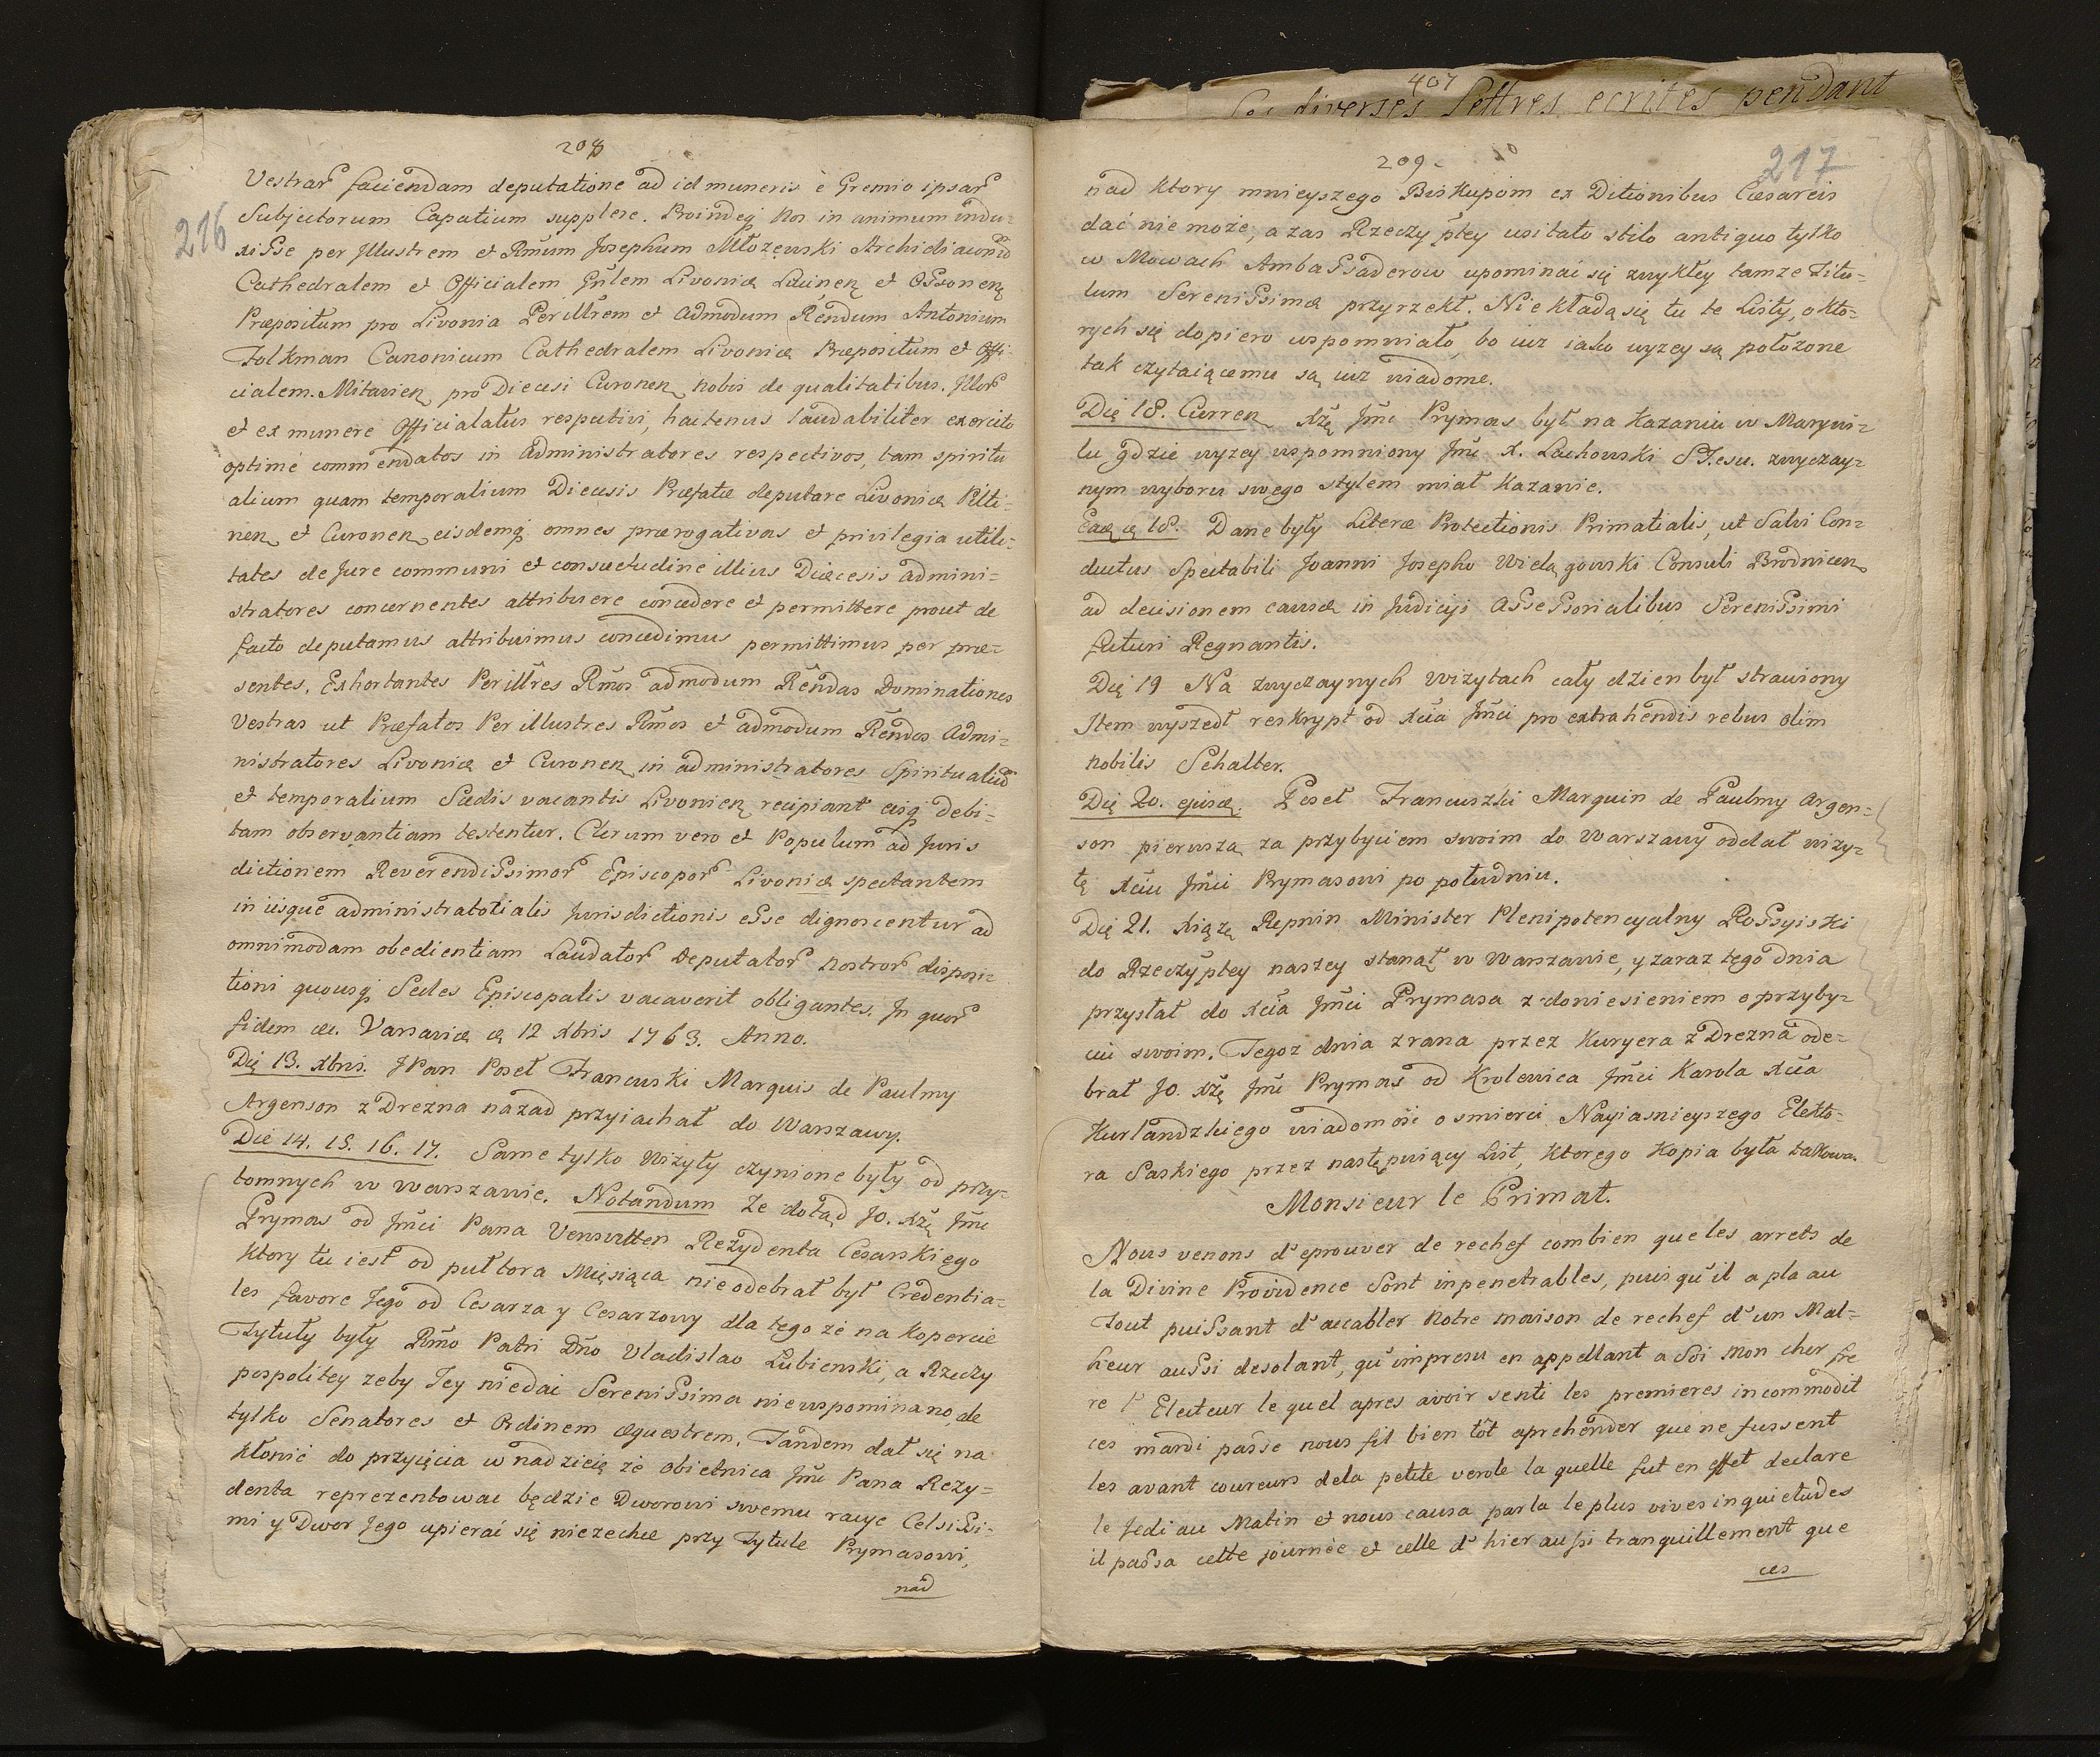 208
216
Vestrar faciendam deputatione ad id muneris è Gremio ipsar
Subjectorum Capatium supplere. Proindeq nos in animum indu-
xisse per Jllustrem et Rmum Josephum Młozewski Archidiaconū
Cathedralem et Officialem Gnlem Livoniæ et
Præpositum pro Livonia Perillrem et admodum Rendum Antonium
Folkman Canonicum Cathedralem Livoniæ Præpositum et Offi-
cialem. Mitavien pro Diecesi Curonen nobis de qualitatibus. Jllor
et ex munere Officialatus respectivi, hactenus laudabiliter exercito
optimè commendatos in administratores respectivos, tam spiritu
alium quam temporalium Diecesis Præfatæ deputare Livoniæ Pilti-
nen et Curonen eisdemq omnes prærogativas et privilegia utili-
tates de Jure communi et consuetudine illius Diæcesis admini-
stratores concernentes attribuere concedere et permittere prout de
facto deputamus attribuimus concedimus permittimus per præ-
sentes. Exhortantes Perillres Rmos admodum Rendas Dominationes
Vestras ut Præfatos Per illustres Rmos et admodum Rendos Admi-
nistratores Livoniæ et Curonen in administratores Spiritualiū
et temporalium Sedis vacantis Livonien recipiant eisq debi-
tam observantiam testentur. Clerum vero et Populum ad Juris
dictionem Reverendissimor Episcopor Livoniæ spectantem
in iisque administratotialis Jurisdictionis esse dignoscentur ad
omnimodam obedientiam Laudator Deputator nostror disposi-
tioni quousq Sedes Episcopalis vacaverit obligantes. Jn quor
fidem &c. Varsaviæ d 12 Xbris 1763. Anno.
Die 13. Xbris. JPan Poseł Francuski Marquis de Paulmy
Argenson z Drezna nazad przyiachał do Warszawy.
Die 14. 15. 16. 17. Same tylko Wizyty czynione były od przy-
tomnych w Warszawie. Notandum że dotąd JO. Xżę Jmć
Prymas od Jmci Pana Vensvitten Rezydenta Cesarskiego
ktory tu iest od pułtora Mięsiąca nieodebrał był Credentia-
les favore Jego od Cesarza y Cesarzowy dla tego że na kopercie
Tytuły były Rmo Patri Dño Vladislao Lubienski, a Rzeczy
pospolitey zeby Jey niedai Serenissima niewspominano, de
tylko Senatores et Ordinem æquestrem. Tandem dał się na
kłonić do przyięcia w nadzieię że obietnica Jmć Pana Rezy-
denta reprezentowac będzie Dworowi swemu racye Celsissi-
mi y Dwor Jego upierać się niezechce przy Tytule Prymasowi,
nad
407
diverses lettres ecrites pendant
209
217
nad ktory mnieyszego Biskupom ex Ditionibus Cæsareis
dać nie może, a zas Rzeczy pltey usitato stilo antiquo tylko
w Mowach Ambassaderow upominać się zwykłey tamze Titu-
lum Serenissimæ przyrzekł. Nie kładą się tu te Listy, o kto-
rych się dopiero wspomniało, bo iuz iako wyzey są położone
tak czytaiącemu są iuz wiadome.
Die 18. Curren Xżę Jmć Prymas był na kazaniu w Marywi-
lu gdzie wyzey wspomniony Jmć X. Lachowski S Jesu. zwyczay-
nym wyboru swego stylem miał kazanie.
18. Dane były Literæ Protectionis Primatialis, ut Salvi Con-
ductus Spectabili Joanni Josepho Consuli Brodnicen
ad decisionem causæ in Judicijs Assessorialibus Serenissimi
futuri Regnantis.
Die 19 Na zwyczaynych wizytach cały dzien był strawiony
Jtem wyszedł reskrypt od Xcia Jmci pro extrahendis rebus olim
nobilis Schalter.
Die 20. ejusd. Poseł Francuszki Marquin de Paulmy Argen-
son pierwszą za przybyciem swoim do Warszawy oddał wizy-
tę Xciu Jmci Prymasowi po południu.
Die 21. Xiążę Repnin Minister Plenipotencyalny Rossyiski
do Rzeczypltey naszey stanął w Warszawie, y zaraz tego dnia
przysłał do Xcia Jmci Prymasa z doniesieniem o przyby-
ciu swoim. Tegoz dnia z rana przez Kuryera z Drezna ode-
brał JO. Xżę Jmć Prymas od Krolewica Jmci Karola Xcia
Kurlandzkiego wiadomość o smierci Nayiasnieyszego Elekto-
ra Saskiego przez następuiący List, ktorego kopia była takowa.
Monsieur le Primat.
Nous venons d'eprouver de rechef combien que les arrets de
la Divine Providence sont inpenetrables, puis qu'il a pla au
Tout puissant d'accabler notre maison de rechef d'un Mal-
heur aussi desolant, qu'impresu en appellant a Soi mon cher fre
re l'Electeur le quel apres avoir senti les premieres incommodit
ces mardi passe nous fit bien tôt aprehender que ne fussent
les avant coureurs dela petite verole la quelle fut en effet declare
le Jedi au Matin et nous causa parla le plus vives inquietudes
il passa cette journèe et celle d'hier aussi tranquillement que
ces